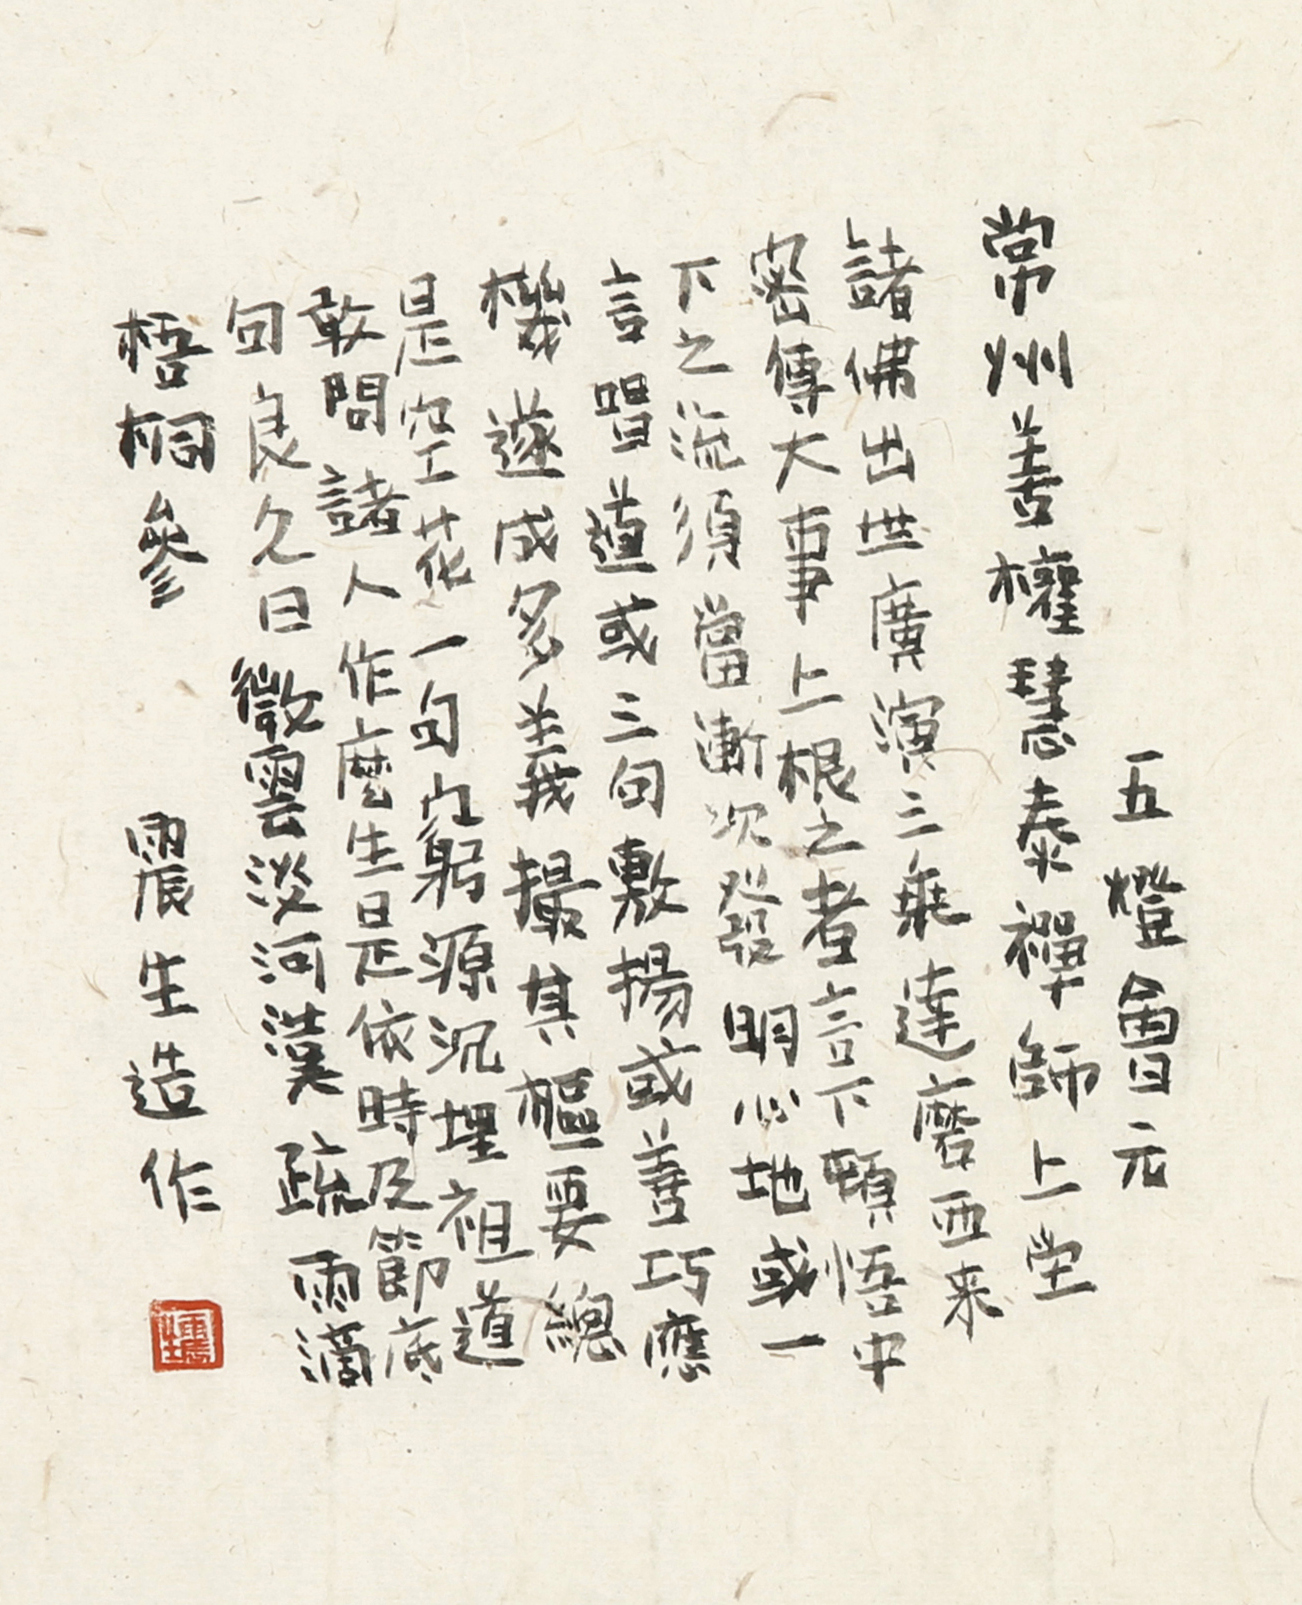 五燈會元
常州善權慧泰禪師上堂
諸佛出世廣演三乘達磨西来
密傳大事上根之者言下頓悟中
下之流須當漸次發明心地或一
言唱道或三句敷揚或善巧應
機遂成多義撮其樞要總
是空花一句窮源沉埋祖道
敢問諸人作麼生是依時及節底
句良久曰微雲淡河漢疏雨滴
梧桐參
晨生造作